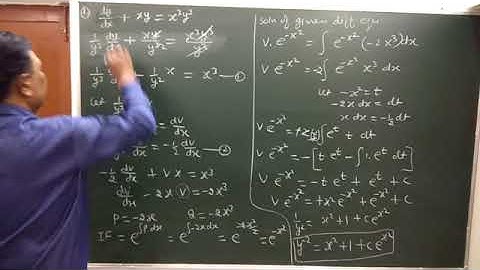 ① dy/dx + xy = x²y³
1/y³ dy/dx + xy/y³ = x³y³/y³
1/y³ + 1/y² x = x³ —①
Let 1/y² = dv/dx
= -1/2 dv/dx —②
-1/2 dv/dx + v x = x³
dv/dx - 2x v = -2x³
P = -2x Q = -2x³
IF = e^∫P dx = e^∫-2x dx = e^-2x²/2 = e^-x²
soln of given diff equ
v. e^-x² = ∫ e^-x² (-2x³) dx
v e^-x² = -2∫ e^-x² x³ dx
Let -x² = t
-2x dx = dt
x dx = -1/2 dt
∫ e^t t dt
v e^-x² = -[t e^t - ∫1. e^t dt]
v e^-x² = -t e^t + e^t + c
v e^-x² = +x² e^-x² + e^-x² + c
1/y² = x² + 1 + c e^x²
y^-2 = x² + 1 + c e^x²